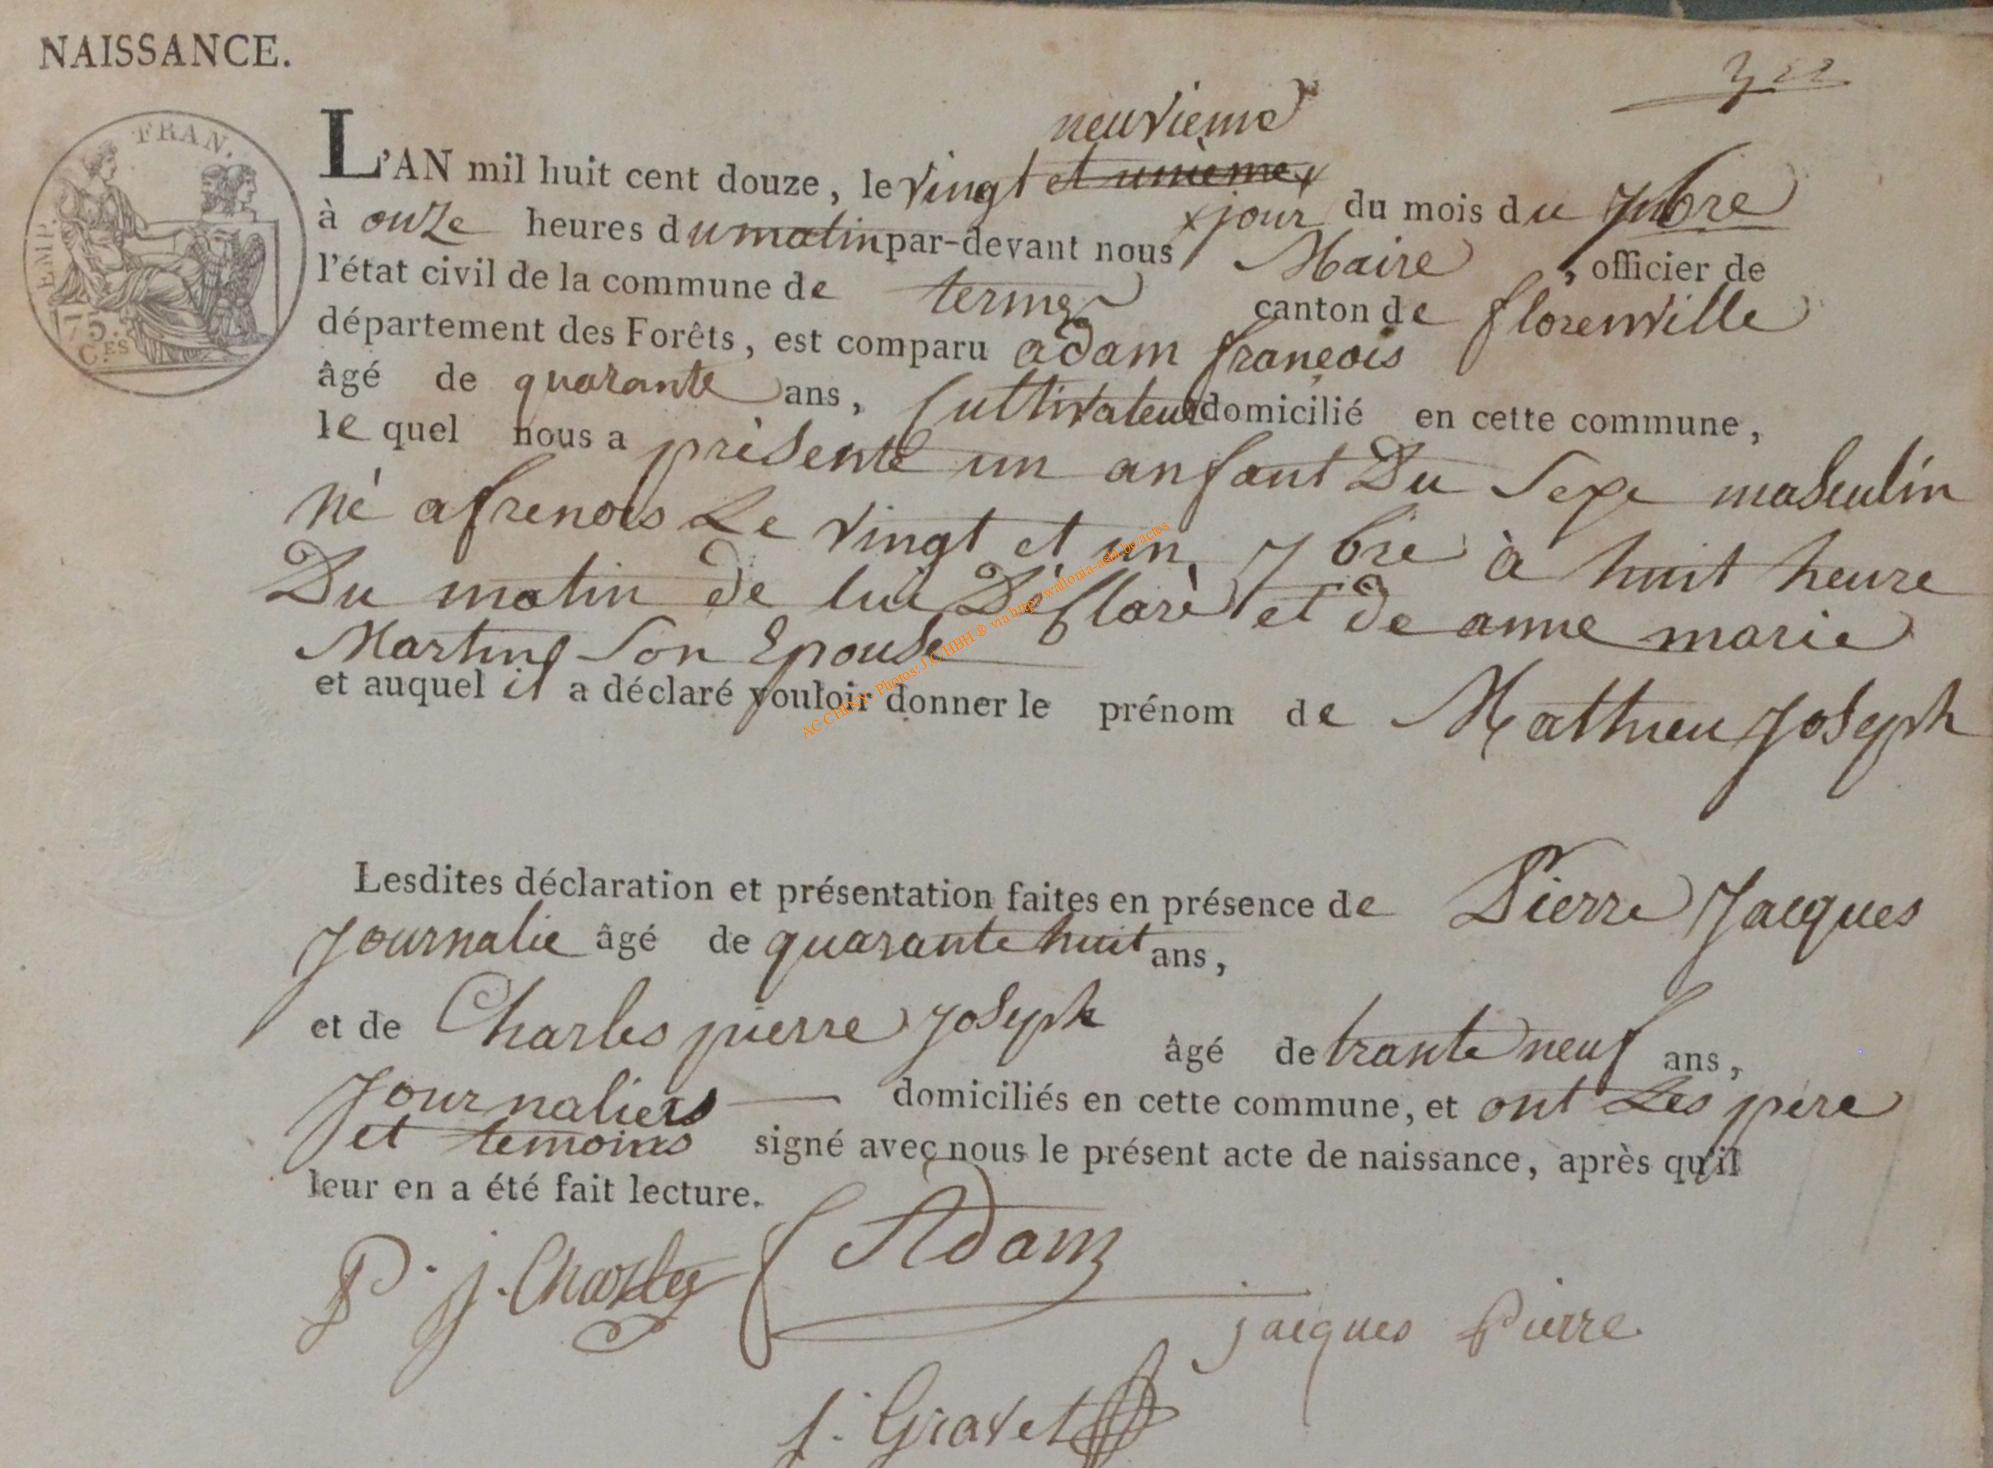 NAISSANCE.
322
FRAN.
EMP.
75.
C.ES
neuvieme
L'AN mil huit cent douze, le vingt et unième x
x jour du mois du 7bre
à onze heures du matin par-devant nous Maire, officier de
l'état civil de la commune de termes canton de florenville
département des Forêts, est comparu adam françois
âgé de quarante ans, Cultivateur domicilié en cette commune,
le quel nous a présenté un anfant Du Sexe masculin
Né a frenois Le vingt et un 7bre à huit heure
Du matin de lui Déclaré et de anne marie
Martin Son Epouse
et auquel il a déclaré vouloir donner le prénom de Mathieu Joseph
AC CHINY Photos: J.C. HBH ® via http://wallonia-asbl.be/actes
Lesdites déclaration et présentation faites en présence de Pierre Jacques
Journalie âgé de quarante huit ans,
et de Charles pierre joseph âgé de trante neuf ans,
Journaliers domiciliés en cette commune, et ont Les pere
et temoins signé avec nous le présent acte de naissance, après qu'il
leur en a été fait lecture.
P. j. Charles f Adam
jacques Pierre
j. Gravet